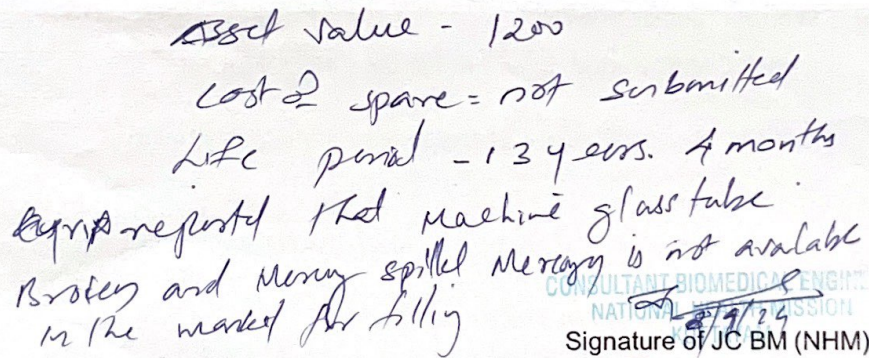 Asset value - 1200
cost of spare = not submitted
Life period - 13 years. 4 months
reported that Machine glass tube
Broken and Mercury spilled Mercury is not available
in the market for filling
CONSULTANT BIOMEDICAL ENGIN
NATIONAL HEALTH MISSION
Signature of JC BM (NHM)